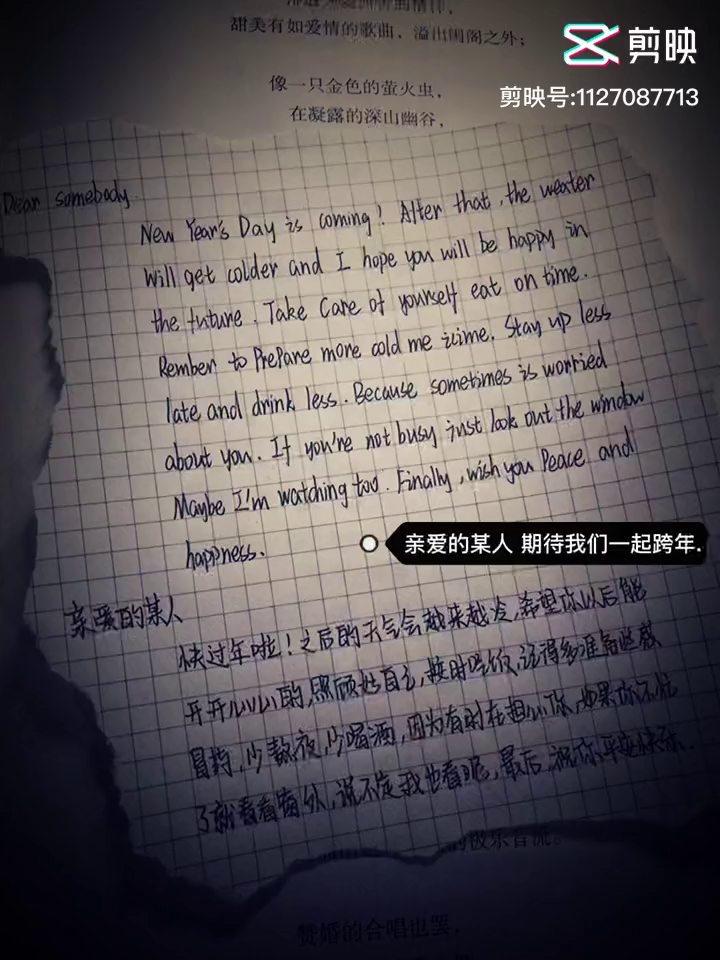 甜美有如爱情的歌曲,溢出闺阁之外;
剪映
剪映号:1127087713
像一只金色的萤火虫,
在凝露的深山幽谷,
Dear somebody
New Year's Day is coming! After that, the weater
will get colder and I hope you will be happy in
the future. Take Care of yourself eat on time.
Rember to Prepare more cold me
late and drink less. Because sometimes is worried
Stay up less
about you. If you're not busy just look out the window
Maybe I'm watching too. Finally, wish you Peace and
happness.
亲爱的某人 期待我们一起跨年.
亲爱的某人
快过年啦!之后的天气会越来越冷,希望你以后能
开开心心的,照顾好自己,按时吃饭,记得多准备些感
冒药,少熬夜,少喝酒,因为有时在担心你,如果你不忙
了就看看窗外,说不定我也看呢,最后,祝你平安快乐.
赞婚的合唱也罢,